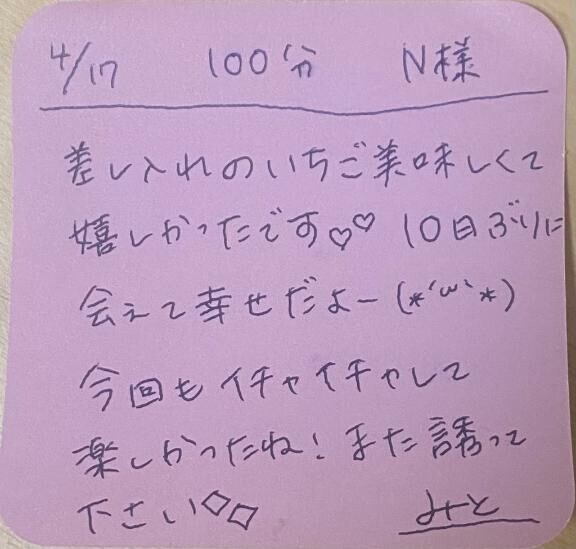 4/17 100分 N様
差し入れのいちご美味しくて
嬉しかったです♡♡ 10日ぶりに
会えて幸せだよー(*´ω`*)
今回もイチャイチャして
楽しかったね!また誘って
下さい◇◇ みと